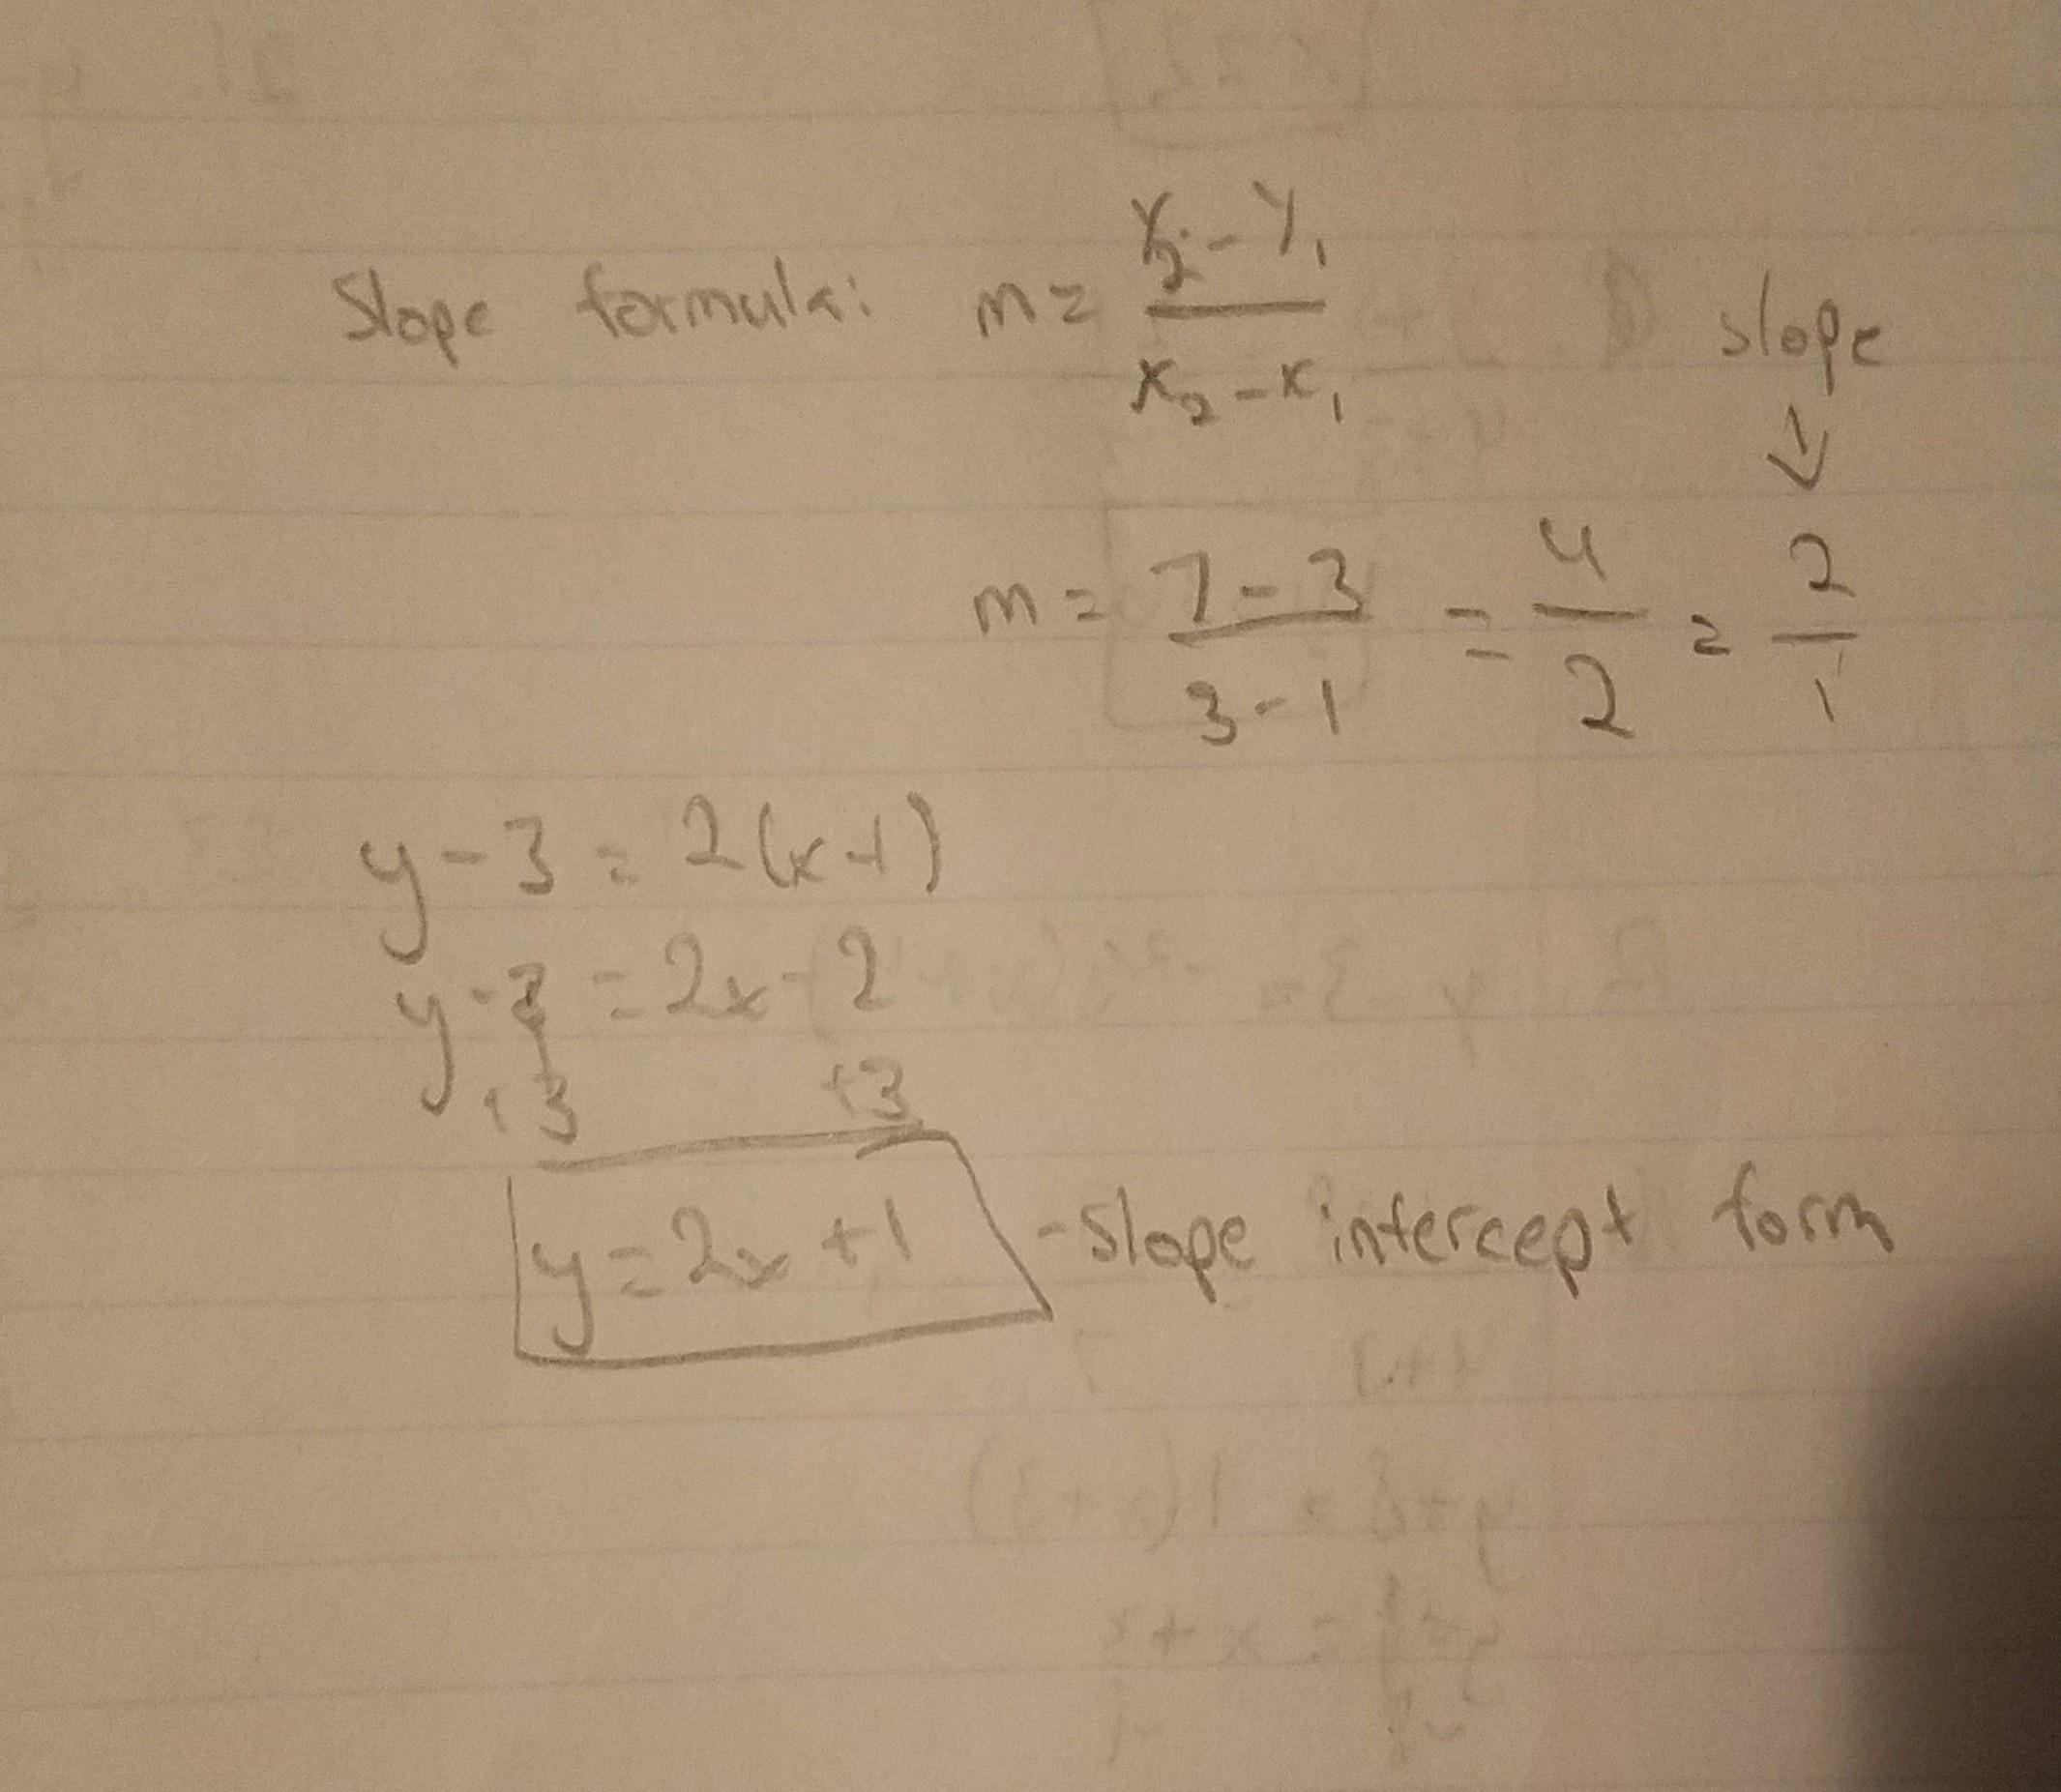 Slope formula: m = y₂ - y₁ / x₂ - x₁
slope
↓
m = 7 - 3 / 3 - 1 = 4 / 2 = 2 / 1
y - 3 = 2(x-1)
y - 3 = 2x - 2
+3 +3
y = 2x + 1 - slope intercept form